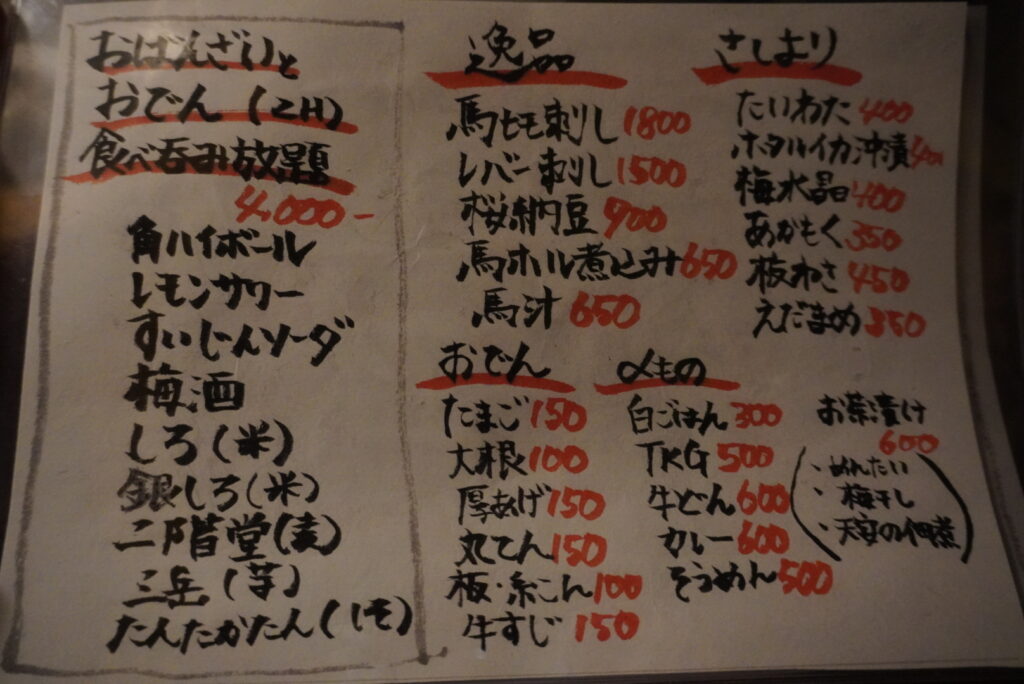 おばんざいと
おでん(2H)
食べ呑み放題
4,000-
角ハイボール
レモンサワー
すいじんソーダ
梅酒
しろ(米)
銀しろ(米)
二階堂(麦)
三岳(芋)
たんたかたん(
逸品
馬モモ刺し 1800
レバー刺し 1500
桜納豆 900
馬ホル煮込み 650
馬汁 650
さしより
たいわた 400
ホタルイカ沖漬 400
梅水晶 400
あかもく 350
板わさ 450
えだまめ 350
おでん
たまご 150
大根 100
厚あげ 150
丸てん 150
板・糸こん 100
牛すじ 150
〆もの
白ごはん 300
TKG 500
牛どん 600
カレー 600
そうめん 500
お茶漬け
600
・めんたい
・梅干し
・天安の佃煮